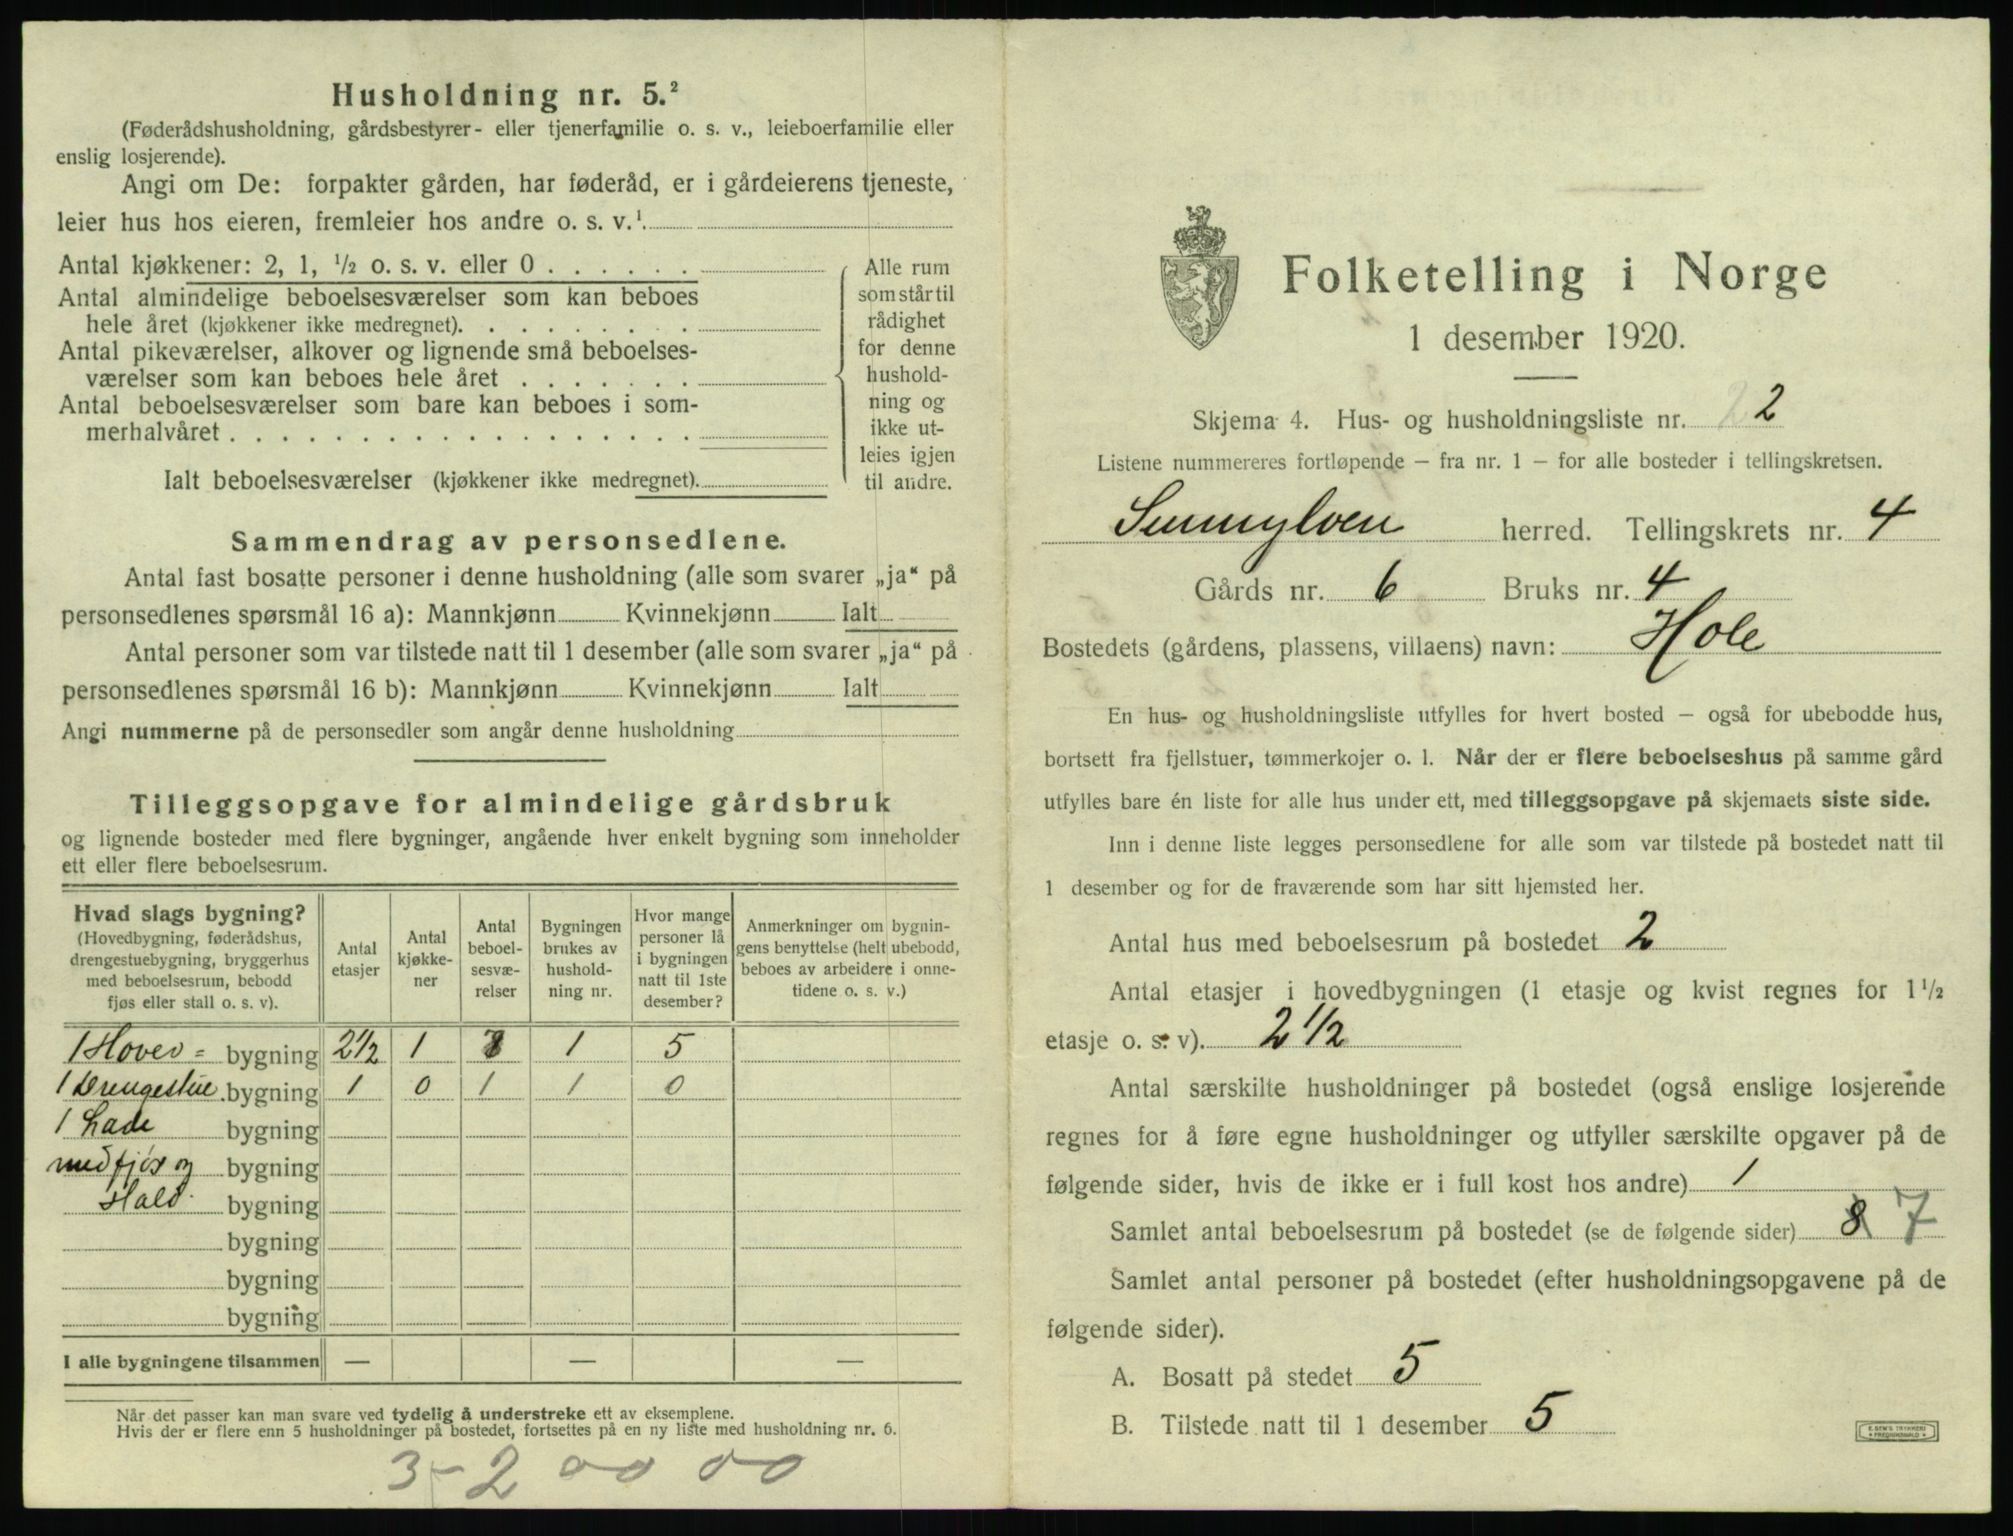 Husholdning nr. 5.²
(Føderådshusholdning, gårdsbestyrer- eller tjenerfamilie o. s. v., leieboerfamilie eller
enslig losjerende).
Angi om De: forpakter gården, har føderåd, er i gårdeierens tjeneste,
leier hus hos eieren, fremleier hos andre o. s. v.¹
Antal kjøkkener: 2, 1, ½ o. s. v. eller 0
Antal almindelige beboelsesværelser som kan beboes
hele året (kjøkkener ikke medregnet).
Antal pikeværelser, alkover og lignende små beboelses-
værelser som kan beboes hele året
Antal beboelsesværelser som bare kan beboes i som-
merhalvåret
Ialt beboelsesværelser (kjøkkener ikke medregnet).
Alle rum
som står til
rådighet
for denne
hushold-
ning og
ikke ut-
leies igjen
til andre.
Sammendrag av personsedlene.
Antal fast bosatte personer i denne husholdning (alle som svarer „ja“ på
personsedlenes spørsmål 16 a): Mannkjønn Kvinnekjønn Ialt
Antal personer som var tilstede natt til 1 desember (alle som svarer „ja“ på
personsedlenes spørsmål 16 b): Mannkjønn Kvinnekjønn Ialt
Angi nummerne på de personsedler som angår denne husholdning
Tilleggsopgave for almindelige gårdsbruk
og lignende bosteder med flere bygninger, angående hver enkelt bygning som inneholder
ett eller flere beboelsesrum.
Hvad slags bygning?
(Hovedbygning, føderådshus,
drengestuebygning, bryggerhus
med beboelsesrum, bebodd
fjøs eller stall o. s. v).
Antal
etasjer
Antal
kjøkke-
ner
Antal
beboel-
sesvæ-
relser
Bygningen
brukes av
hushold-
ning nr.
Hvor mange
personer lå
i bygningen
natt til 1ste
desember?
Anmerkninger om bygnin-
gens benyttelse (helt ubebodd,
beboes av arbeidere i onne-
tidene o. s. v.)
1 Hoved= bygning 2½ 1 1 5
1 Drengestue bygning 1 0 1 1 0
1 Lade bygning
med fjös og bygning
Hald bygning
bygning
bygning
bygning
I alle bygningene tilsammen — — —
Når det passer kan man svare ved tydelig å understreke ett av eksemplene.
Hvis der er flere enn 5 husholdninger på bostedet, fortsettes på en ny liste med husholdning nr. 6.
3-2 00 00
Folketelling i Norge
1 desember 1920.
Skjema 4. Hus- og husholdningsliste nr. 2
Listene nummereres fortløpende — fra nr. 1 — for alle bosteder i tellingskretsen.
Sunnylven herred. Tellingskrets nr. 4
Gårds nr. 6 Bruks nr. 4
Bostedets (gårdens, plassens, villaens) navn: Hole
En hus- og husholdningsliste utfylles for hvert bosted — også for ubebodde hus,
bortsett fra fjellstuer, tømmerkojer o. l. Når der er flere beboelseshus på samme gård
utfylles bare én liste for alle hus under ett, med tilleggsopgave på skjemaets siste side.
Inn i denne liste legges personsedlene for alle som var tilstede på bostedet natt til
1 desember og for de fraværende som har sitt hjemsted her.
Antal hus med beboelsesrum på bostedet 2
Antal etasjer i hovedbygningen (1 etasje og kvist regnes for 1½
etasje o. s. v). 2½
Antal særskilte husholdninger på bostedet (også enslige losjerende
regnes for å føre egne husholdninger og utfyller særskilte opgaver på de
følgende sider, hvis de ikke er i full kost hos andre) 1
Samlet antal beboelsesrum på bostedet (se de følgende sider) 8 7
Samlet antal personer på bostedet (efter husholdningsopgavene på de
følgende sider).
A. Bosatt på stedet 5
B. Tilstede natt til 1 desember 5